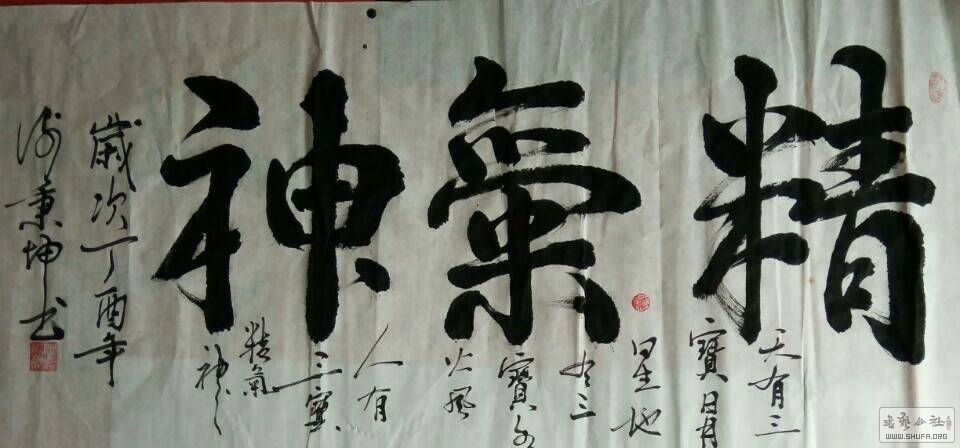 精氣神
天有三
寶日月
星地
有三
寶水
火風
人有
三寶
精氣
神
歲次丁酉年
秉坤书
公社
WWW.SHUFA.ORG